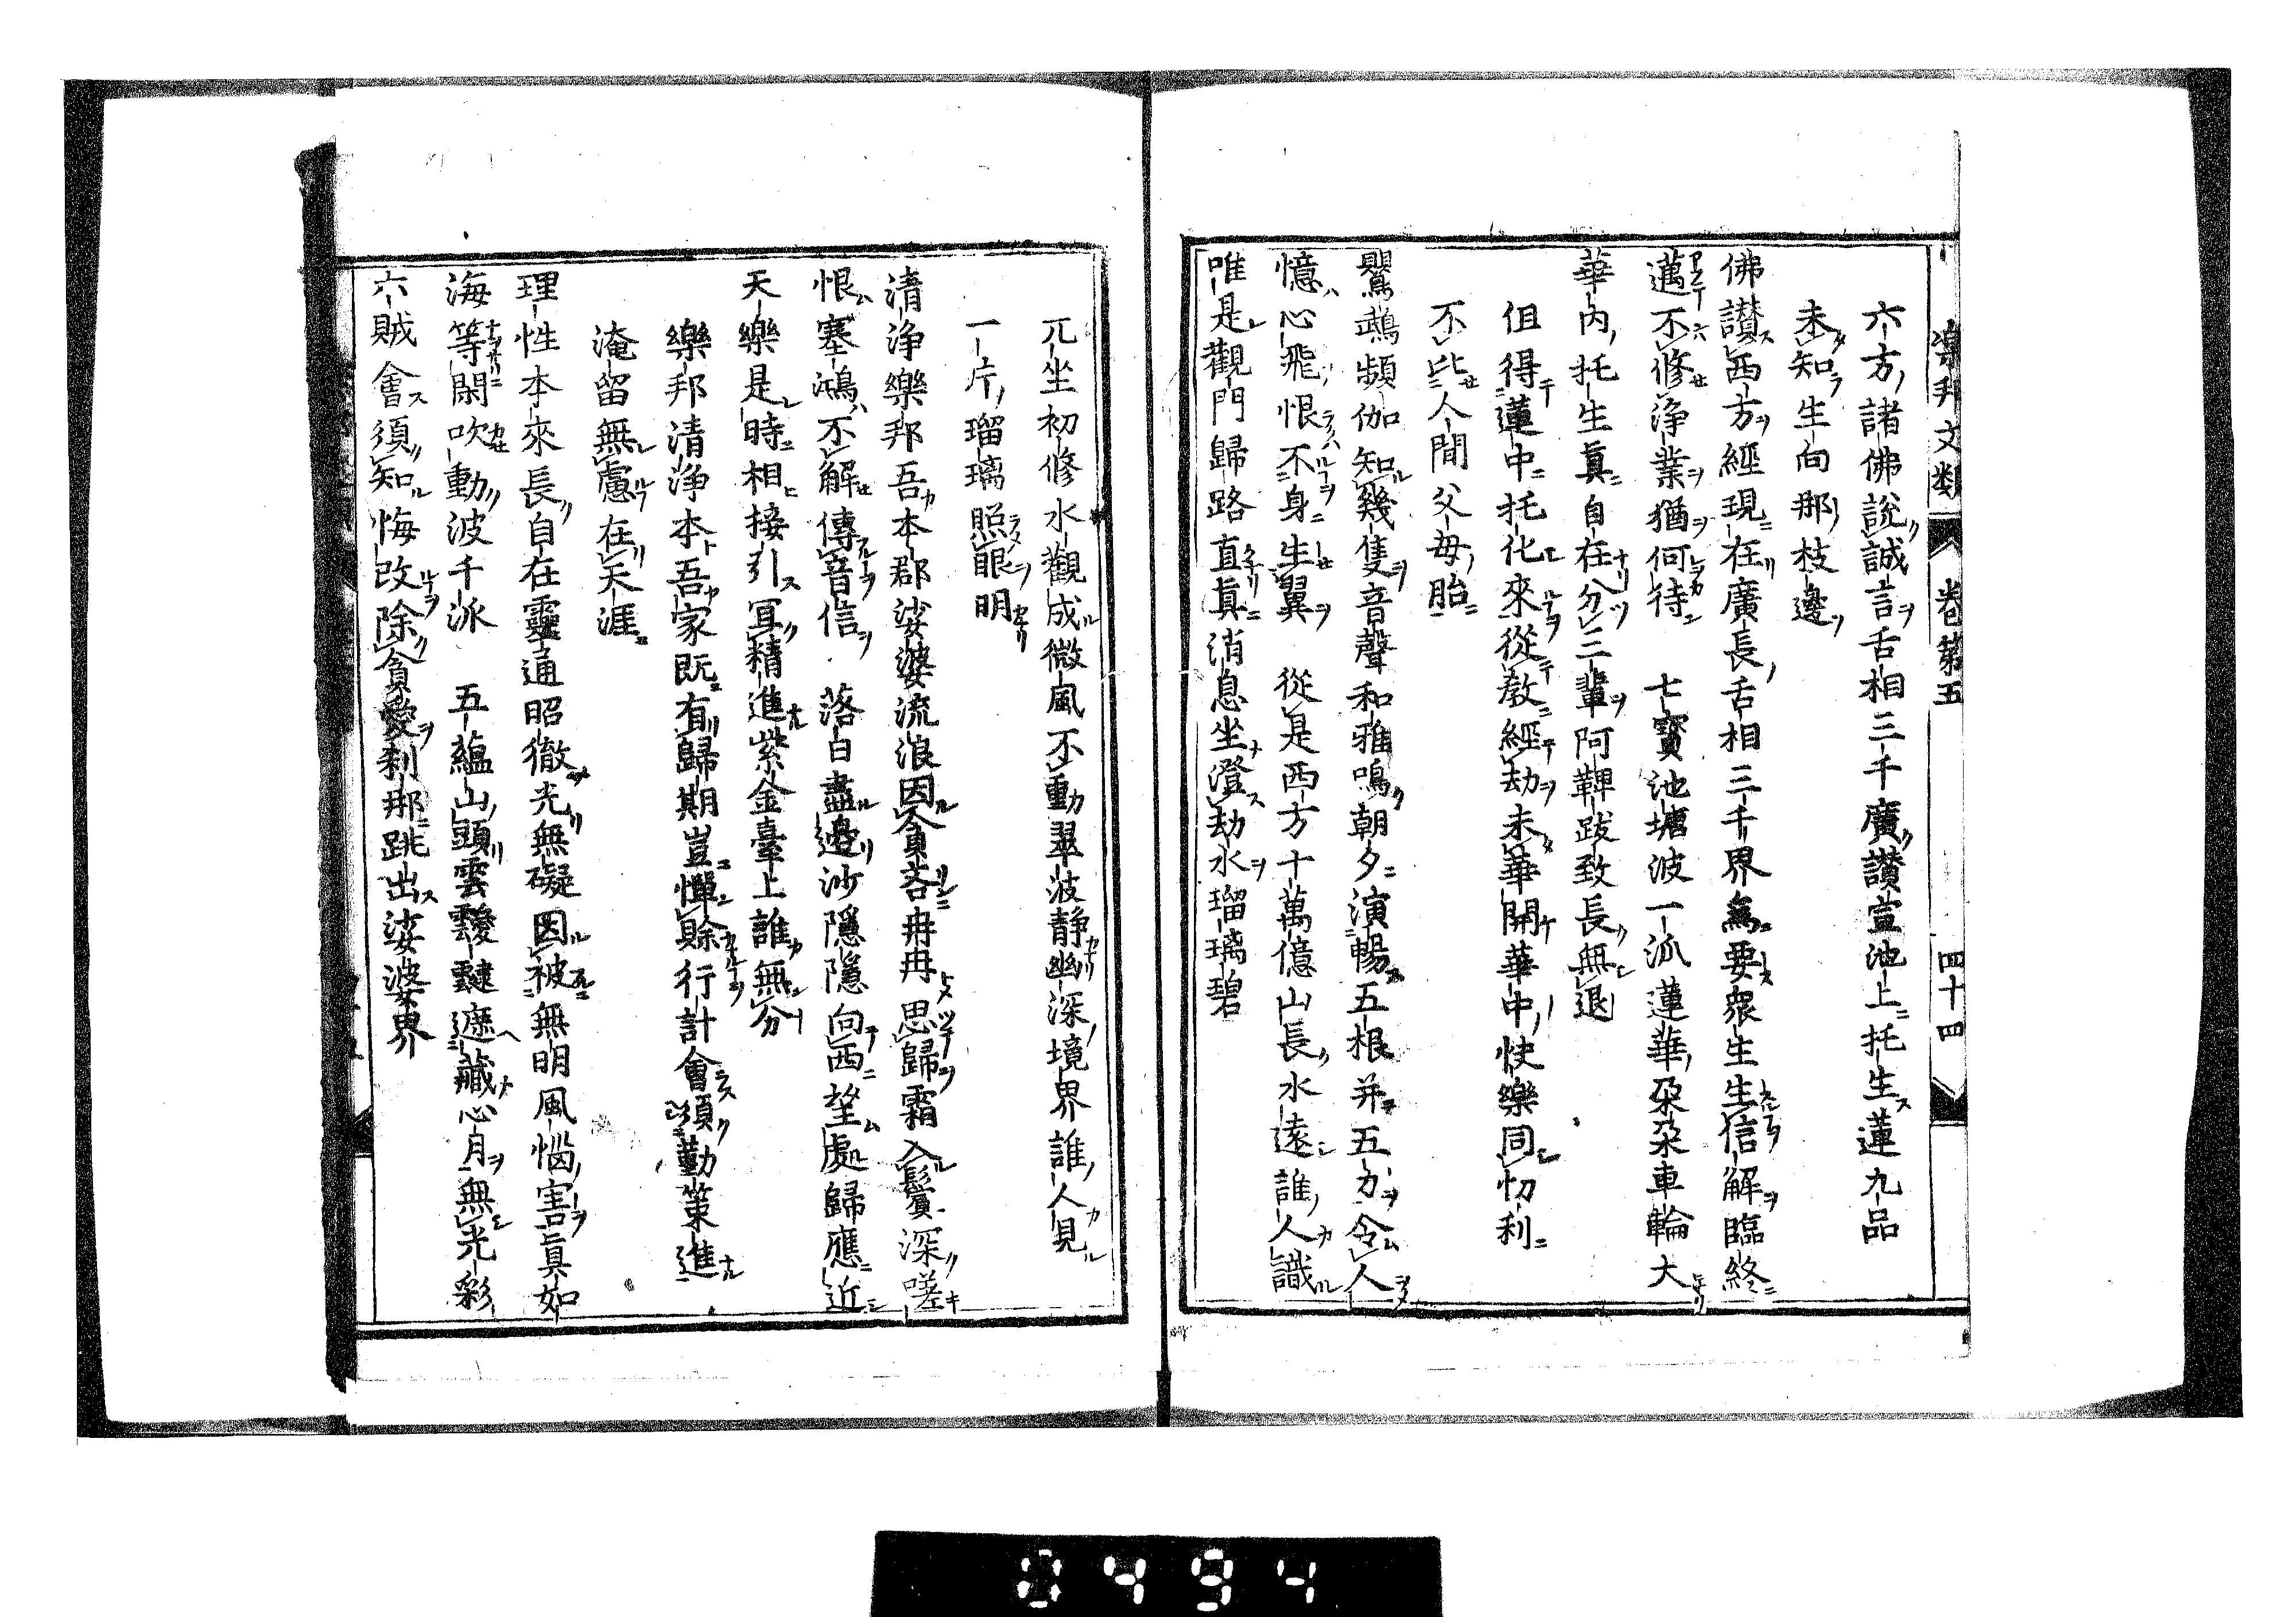 樂邦文類 卷第五 四十四
六方諸佛說誠言舌相三千廣讚宣池上托生蓮九品
未知生向那枝邊
佛讃西方經現在廣長舌相三千界無要衆生生信解臨終
邁不修淨業猶何待 七寳池塘波一派蓮華朶朶車輪大
華內托生眞自在分三輩阿鞞跋致長無退
但得蓮中托化來從敎經劫未華開華中快樂同忉利
不比人間父母胎
鸎鵡頻伽知幾隻音聲和雅鳴朝夕演暢五根并五力令人
憶心飛恨不身生翼 從是西方十萬億山長水遠誰人識
唯是觀門歸路直眞消息坐澄劫水瑠璃碧
兀坐初修水觀成微風不動翠波静幽深境界誰人見
一片瑠璃照眼明
清淨樂邦吾本郡娑婆流浪因貪吝冉冉思歸霜入鬢深嗟
恨塞鴻不解傳音信 落日盡邊沙隱隱向西望處歸應近
天樂是時相接引冝精進紫金臺上誰無分
樂邦清淨本吾家既有歸期豈憚賖行計會須勤策進
淹留無慮在天涯
理性本來長自在靈通昭徹光無礙因被無明風惱害眞如
海等閑吹動波千派 五蘊山頭雲靉靆遮藏心月無光彩
六賊會須知悔改除貪愛刹那跳出娑婆界
0494